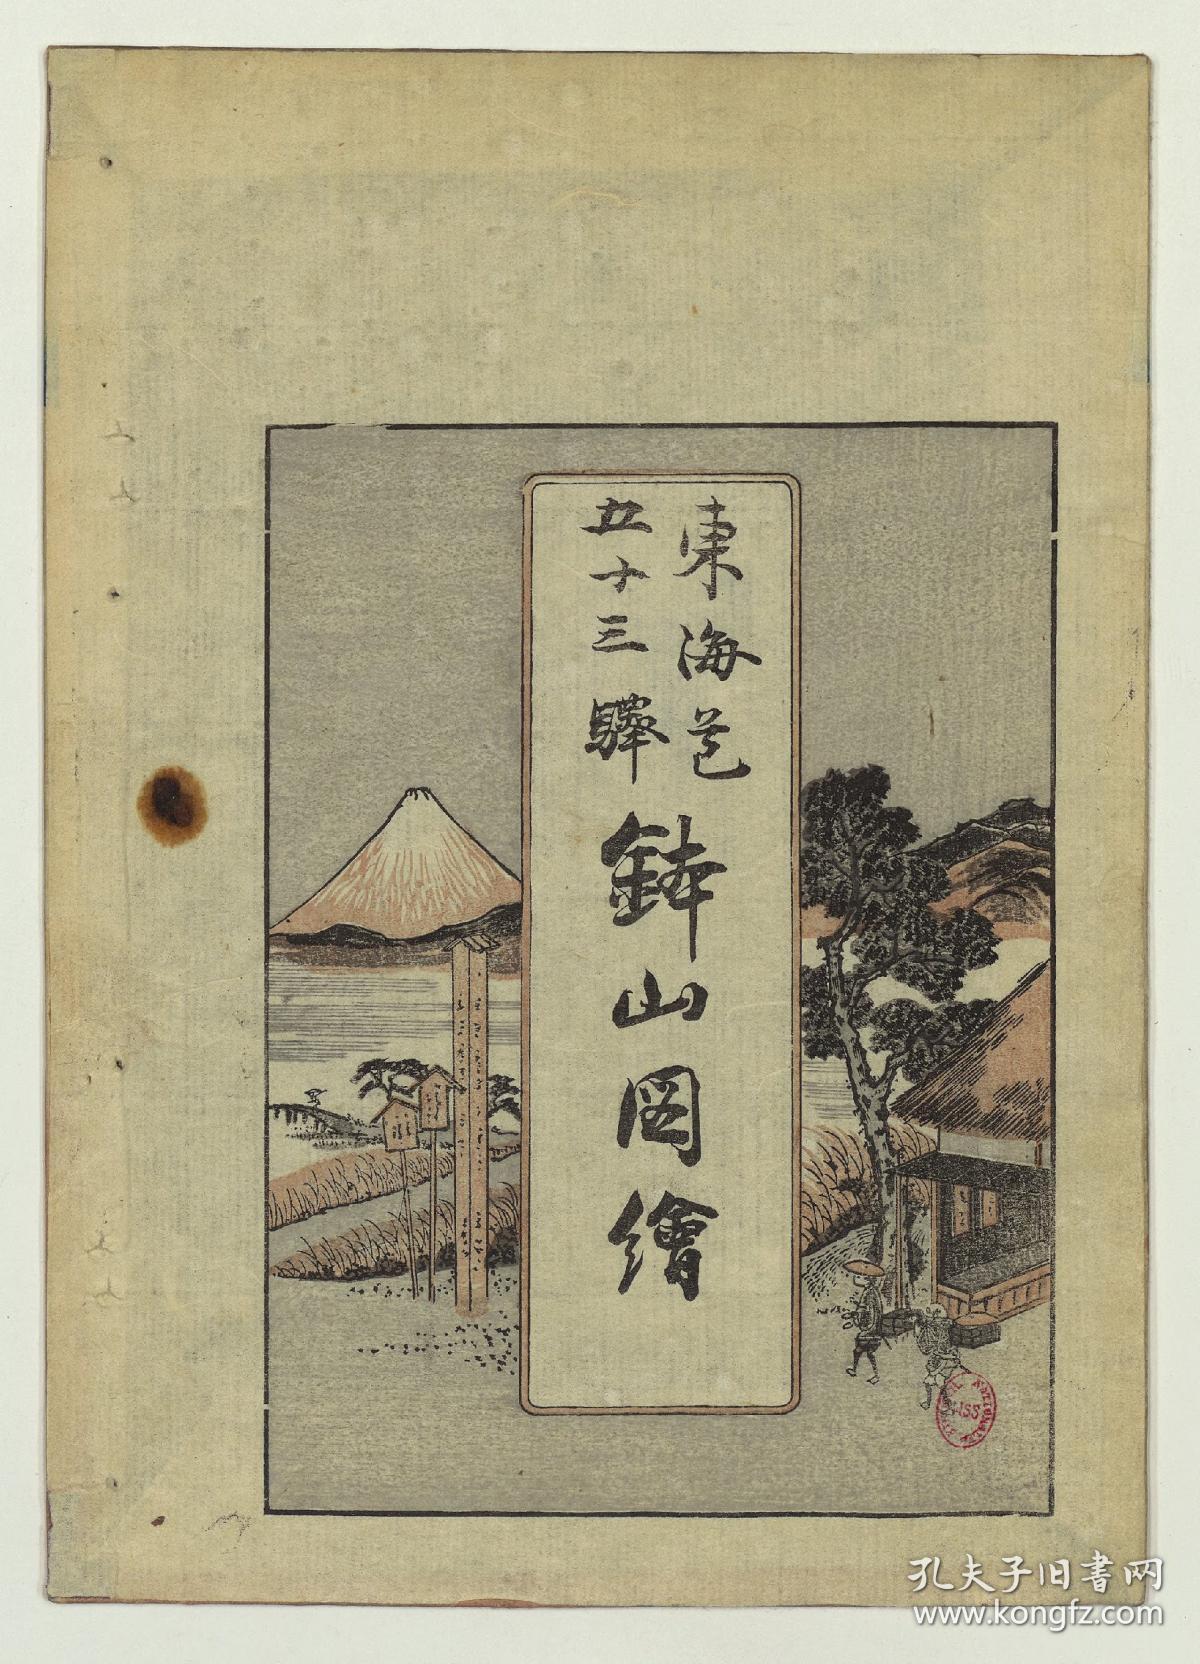 東海道
五十三驛
鉢山図繪
NATIONALE
MSS
孔夫子旧書网
www.kongfz.com